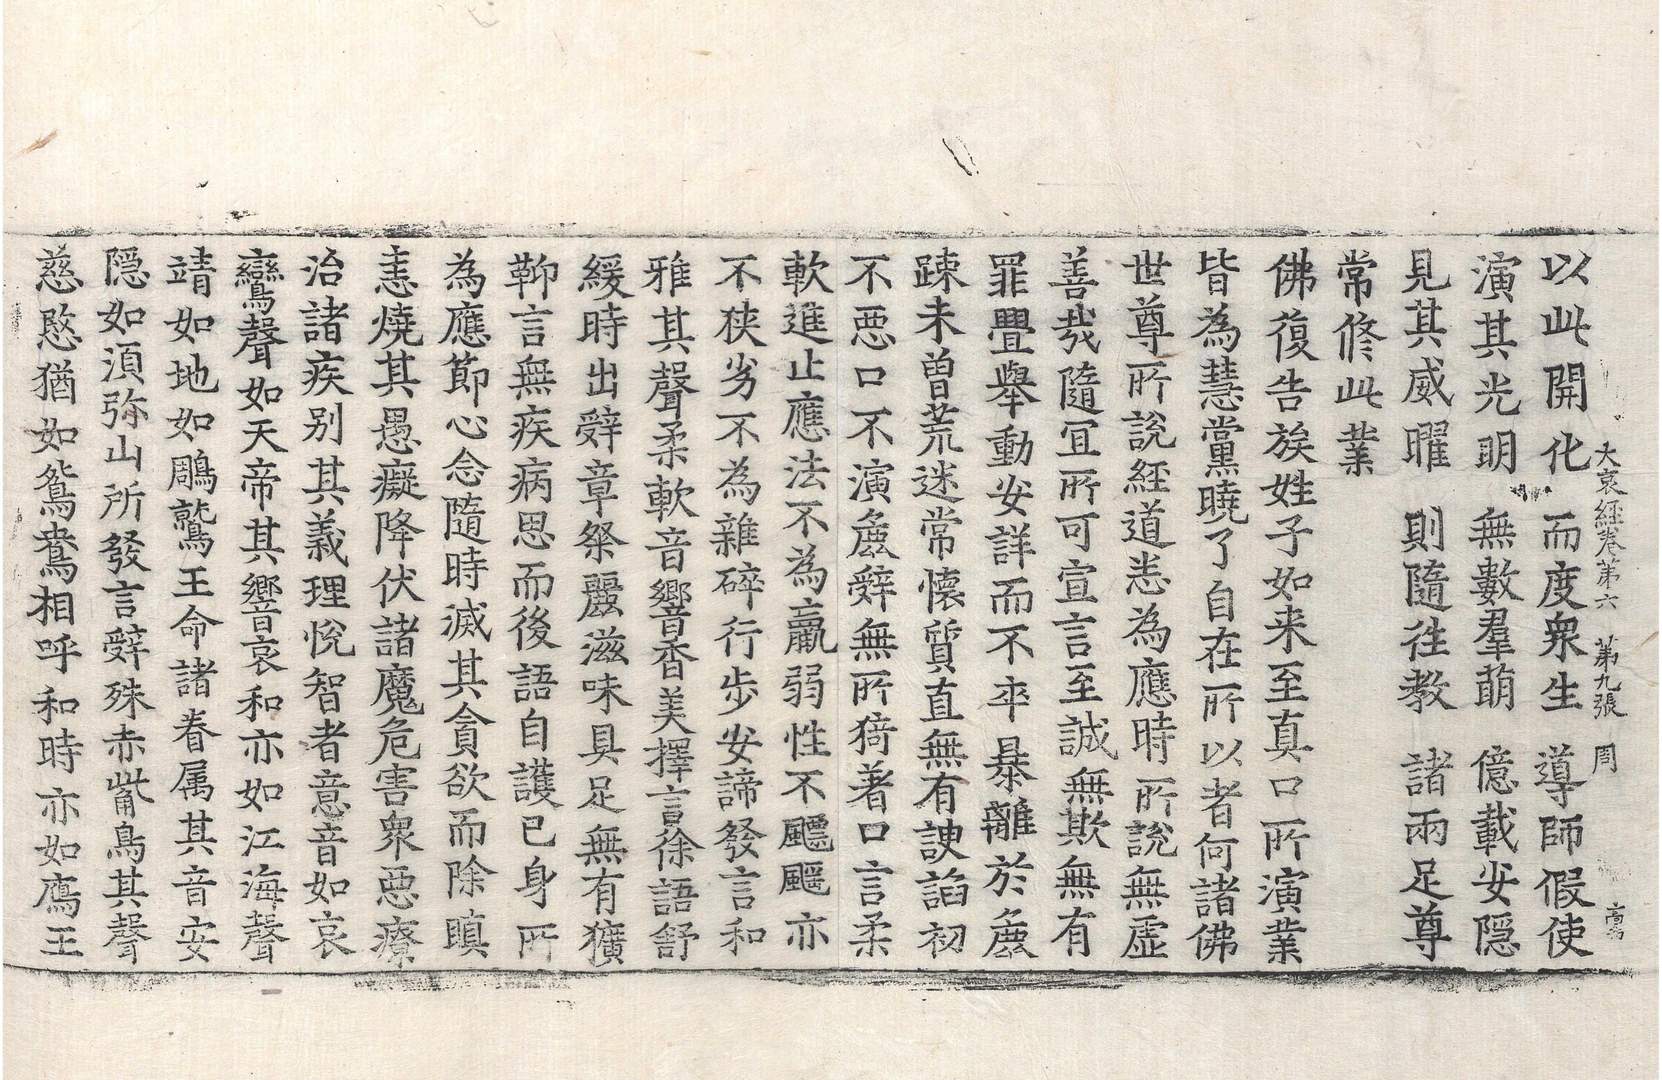 大哀經卷第六　第九張　周
以此開化　而度衆生　導師假使
演其光明　無數羣萠　億載安隱
見其威曜　則隨徃教　諸兩足尊
常修此業
佛復告族姓子如来至真口所演業
皆為慧黨曉了自在所以者何諸佛
世尊所說經道悉為應時所說無虛
善哉隨宜所可宣言至誠無欺無有
罪舋舉動安詳而不卒暴離於麁
踈未曽荒迷常懷質直無有諛諂初
不惡口不演麁辝無所猗著口言柔
軟進止應法不為羸弱性不飃飃亦
不狹劣不為雜碎行步安諦發言和
雅其聲柔軟音響香美擇言徐語舒
緩時出辝章粲麗滋味具足無有獷
䩕言無疾病思而後語自護已身所
為應節心念隨時滅其貪欲而除瞋
恚燒其愚癡降伏諸魔危害衆惡療
治諸疾别其義理悅智者意音如哀
鸞聲如天帝其響哀和亦如江海聲
靖如地如鵰鷲王命諸眷属其音安
隱如湏弥山所發言辝殊赤觜鳥其聲
慈愍猶如鴛鴦相呼和時亦如鴈王